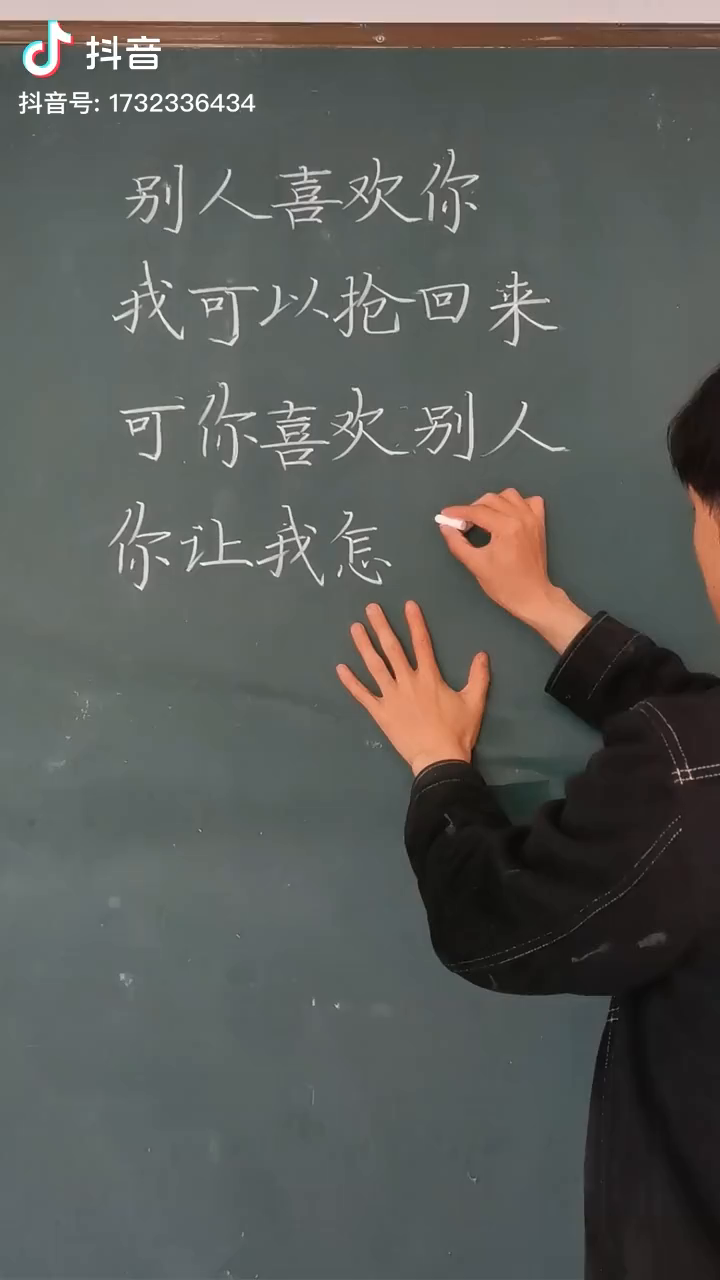 抖音
抖音号: 1732336434
别人喜欢你
我可以抢回来
可你喜欢别人
你让我怎